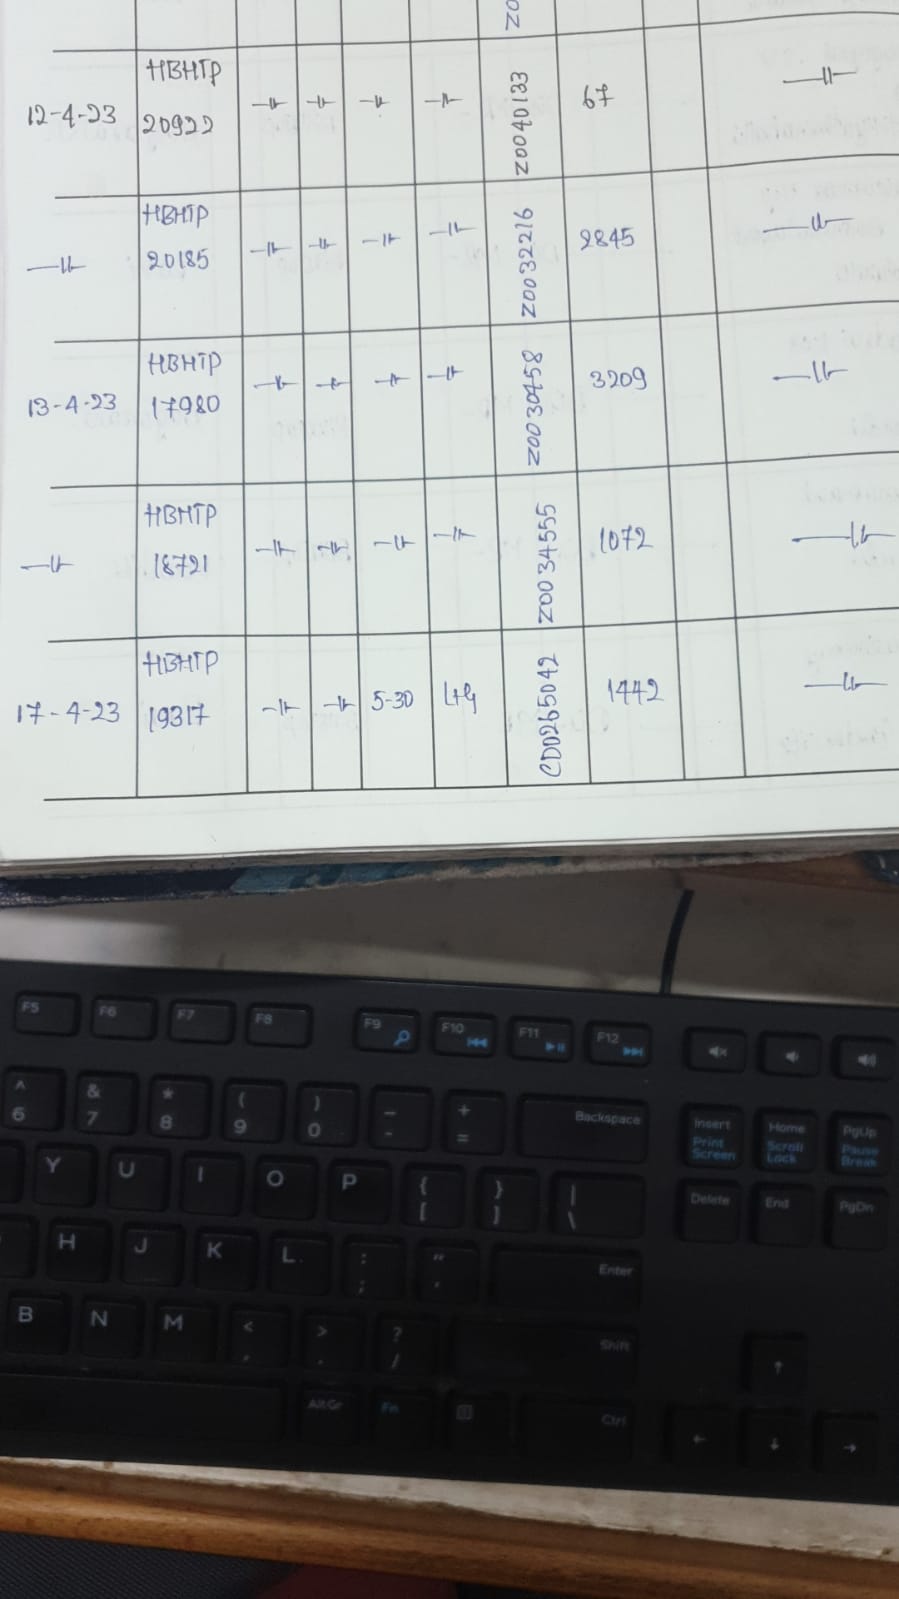 Z0
12-4-23 HBHTP 20922 -11- -11- -11- -11- Z0040133 67 -11-
-11- HBHTP 20185 -11- -11- -11- -11- Z0032216 2845 -11-
13-4-23 HBHTP 17980 -11- -11- -11- -11- Z0030758 3209 -11-
-11- HBHTP 18721 -11- -11- -11- -11- Z0034555 1072 -11-
17-4-23 HBHTP 19317 -11- -11- 5-30 LHG CD0265042 1442 -11-
F5 F6 F7 F8 F9 F10 F11 F12
^ & * ( ) _ + Backspace Insert Home PgUp
6 7 8 9 0 - = Print Screen Scroll Lock Pause Break
Y U I O P { } | Delete End PgDn
[ ] \
H J K L : " Enter
; '
B N M < > ? Shift
, . /
AltGr Fn Ctrl